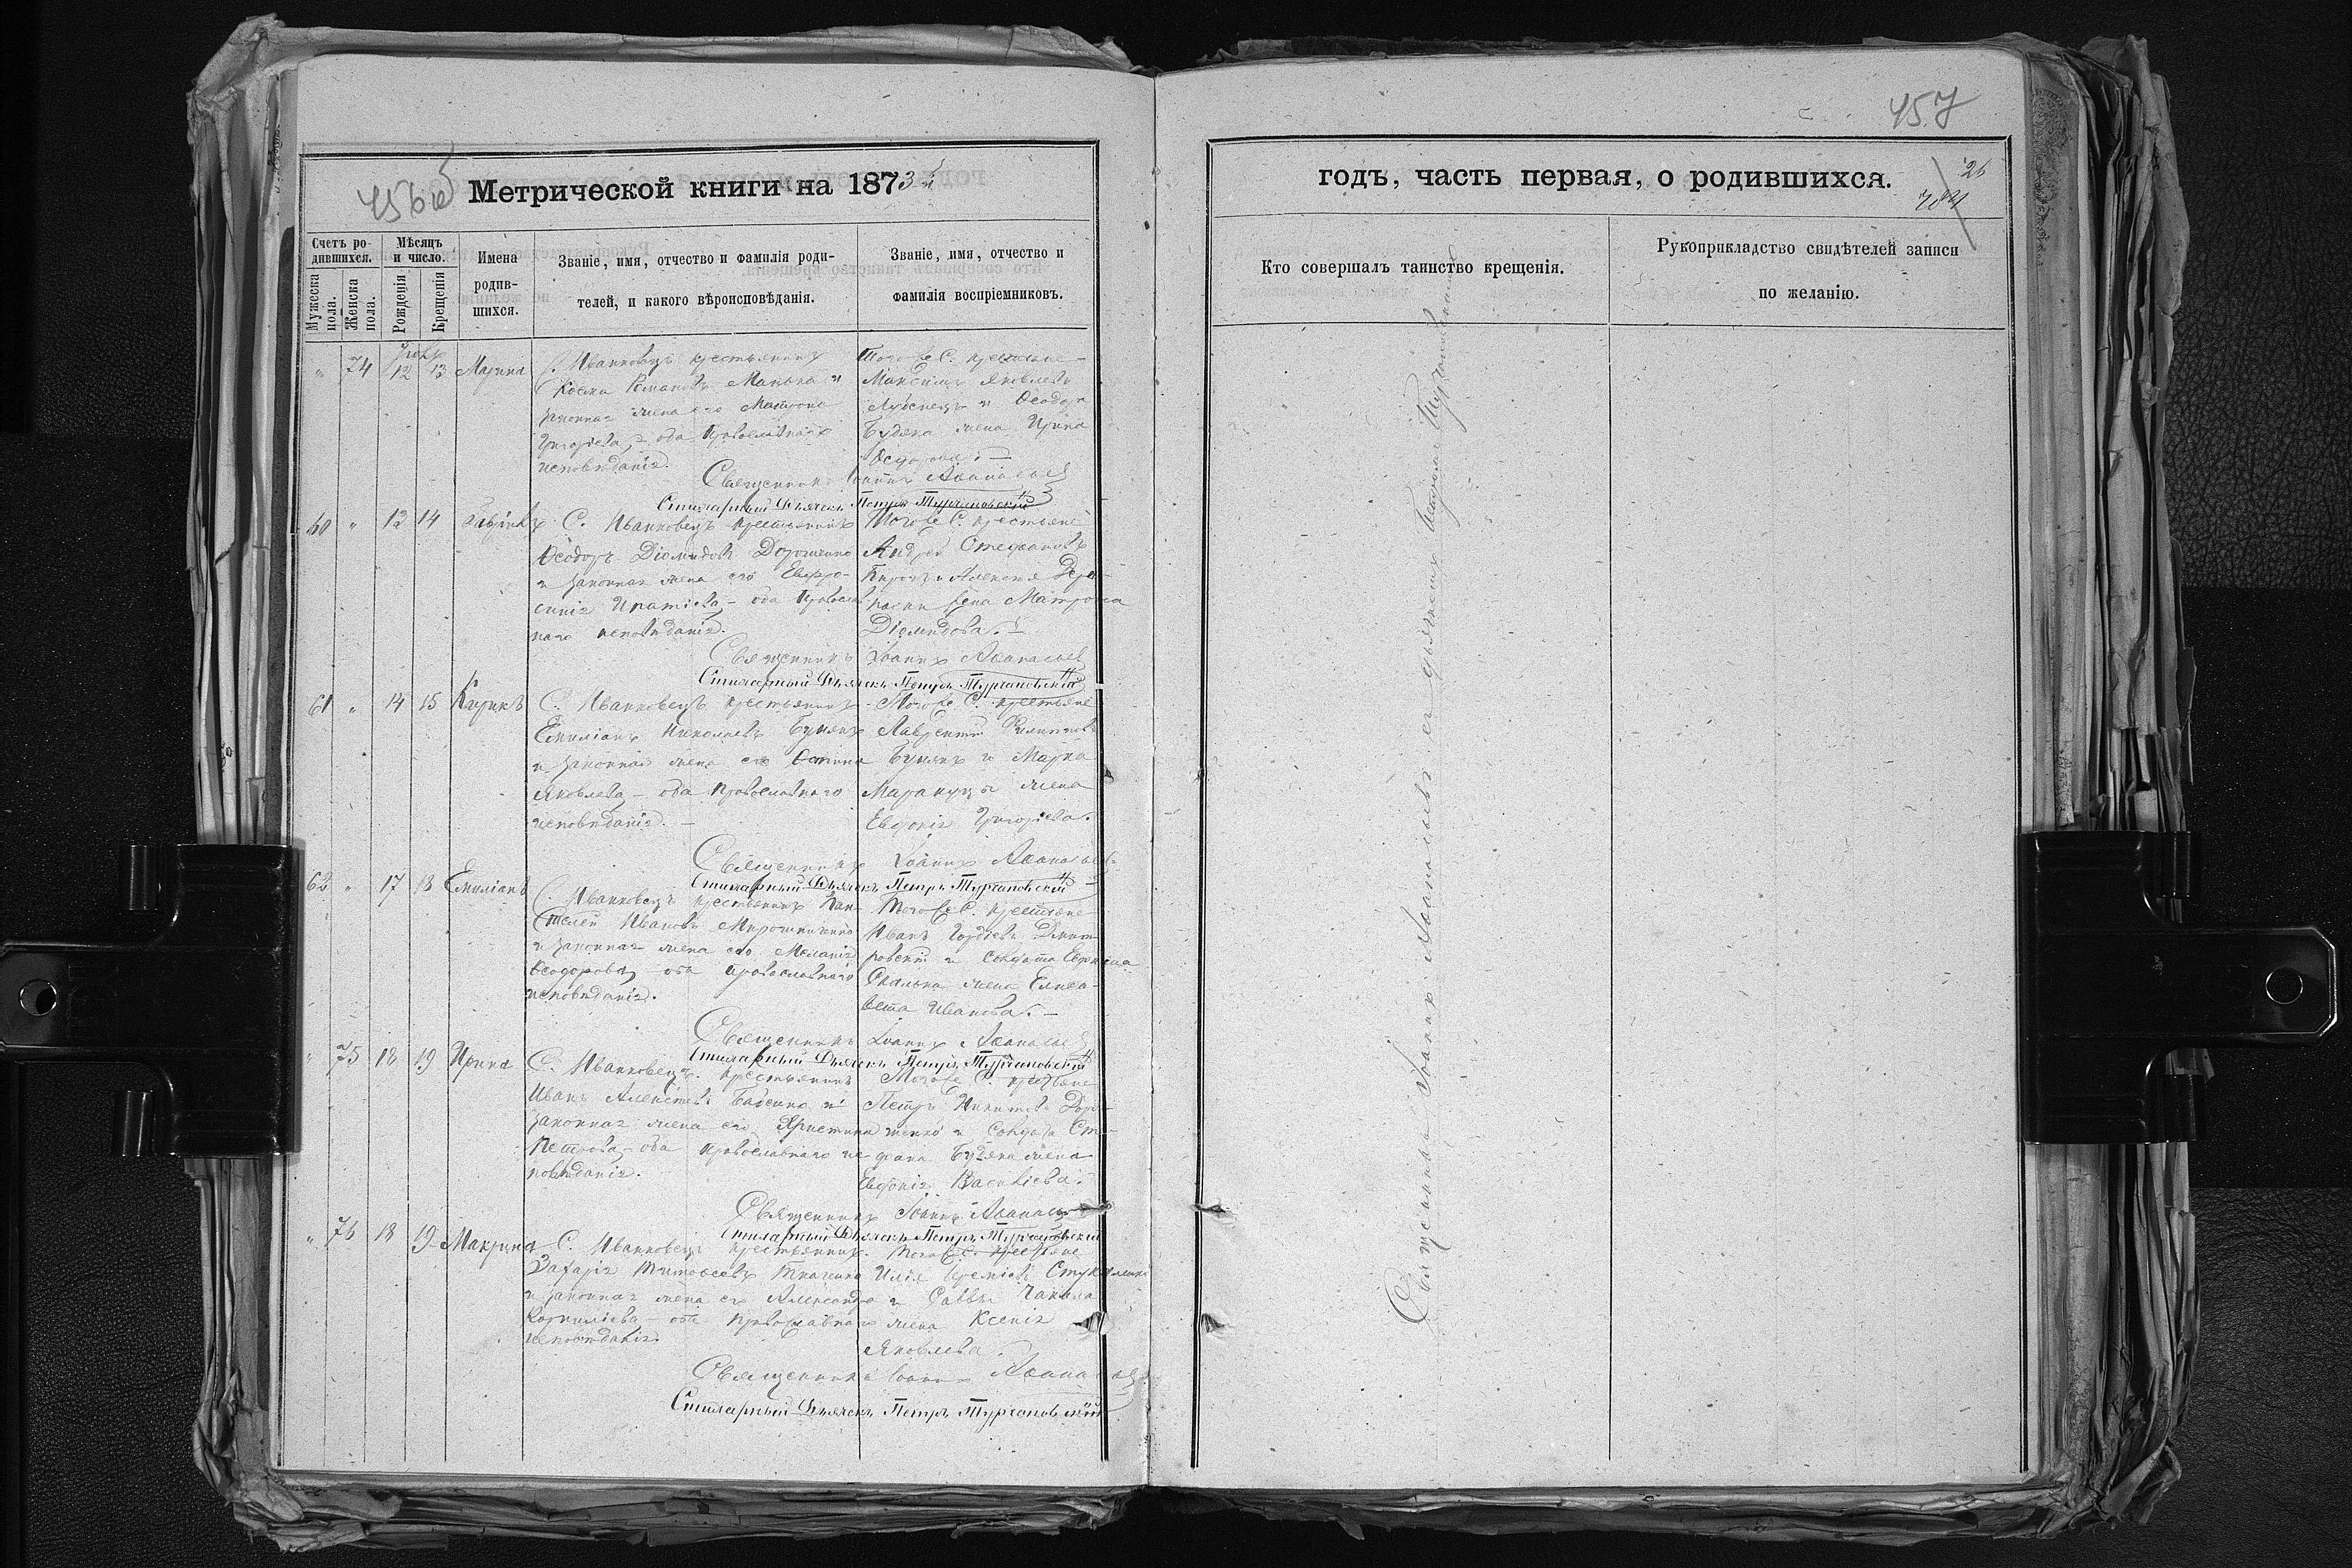 456 об
Метрической книги на 1873 й
Счетъ ро-
дившихся.
Мѣсяцъ
и число.
Мужеска
пола.
Женска
пола.
Рожденія
Крещенія
Имена
родив-
шихся.
Званіе, имя, отчество и фамилія роди-
телей, и какого вѣроисповѣданія.
Званіе, имя, отчество и
фамилія воспріемниковъ.
" 74 12 13 Марина
С. Иванковецъ крестьянинъ
Косма Романовъ Манька и
законная жена его Матрона
Григоріева, оба Православнаго
исповѣданія.
Тогоже С. крестьяне
Максимъ Яковлевъ
и Ѳеодора
Будяка жена Ирина
Священникъ Іоаннъ Аѳанасьевъ
Стихарный Дьячекъ Петръ Турчановскій
60 " 12 14 Гавріилъ
С. Иванковецъ крестьянинъ
Ѳеодоръ Діомидовъ Дорошенко
и законная жена его Евфро-
синія Ипатіева – оба Православ-
наго исповѣданія.
Тогоже С. крестьяне
Андрей Стефановъ
и Алексія
жена Матрона
Діомидова. –
Священникъ Іоаннъ Аѳанасьевъ
Стихарный Дьячекъ Петръ Турчановскій
61 " 14 15 Кирикъ
С. Иванковецъ крестьянинъ
Емиліанъ Николаевъ Бунякъ
и законная жена его Устина
Яковлева – оба Православнаго
исповѣданія. –
Тогоже С. крестьяне
Лаврентій Филиповъ
Бунякъ и Марка
Маракуцы жена
Евдокія Григоріева.
Священникъ Іоаннъ Аѳанасьевъ
Стихарный Дьячекъ Петръ Турчановскій
62 " 17 18 Емиліанъ
С. Иванковецъ крестьянинъ Пан-
телей Ивановъ Мирошниченко
и законная жена его Меланія
Ѳеодорова, – оба православнаго
исповѣданія.
Тогоже С. крестьяне
Иванъ Гордіевъ Дмит-
ровскій и солдата Ефима
Скалька жена Елиса-
вета Иванова. –
Священникъ Іоаннъ Аѳанасьевъ
Стихарный Дьячекъ Петръ Турчановскій
" 75 18 19 Ирина
С. Иванковецъ крестьянинъ
Иванъ Алексѣевъ Бабенко и
законная жена его Христина
Петрова – оба православнаго ис-
повѣданія.
Тогоже С. крестьяне
Петръ Никитовъ Доро-
шенко и солдата Сте-
фана Будяка жена
Евдокія Василіева.
Священникъ Іоаннъ Аѳанасьевъ
Стихарный Дьячекъ Петръ Турчановскій
" 76 18 19 Макрина
С. Иванковецъ крестьянинъ
Захарія Тимоѳеевъ Ткаченко
и законная жена его Александра
Корниліева – оба православнаго
исповѣданія.
Тогоже С. крестьяне
Илія Еремѣевъ Стукаленко
и Саввы Чакала
жена Ксенія
Яковлева.
Священникъ Іоаннъ Аѳанасьевъ
Стихарный Дьячекъ Петръ Турчановскій
457
годъ, часть первая, о родившихся.
26
Кто совершалъ таинство крещенія.
Рукоприкладство свидѣтелей записи
по желанію.
Священникъ Іоаннъ Аѳанасьевъ съ дьячкомъ Петромъ Турчановскимъ